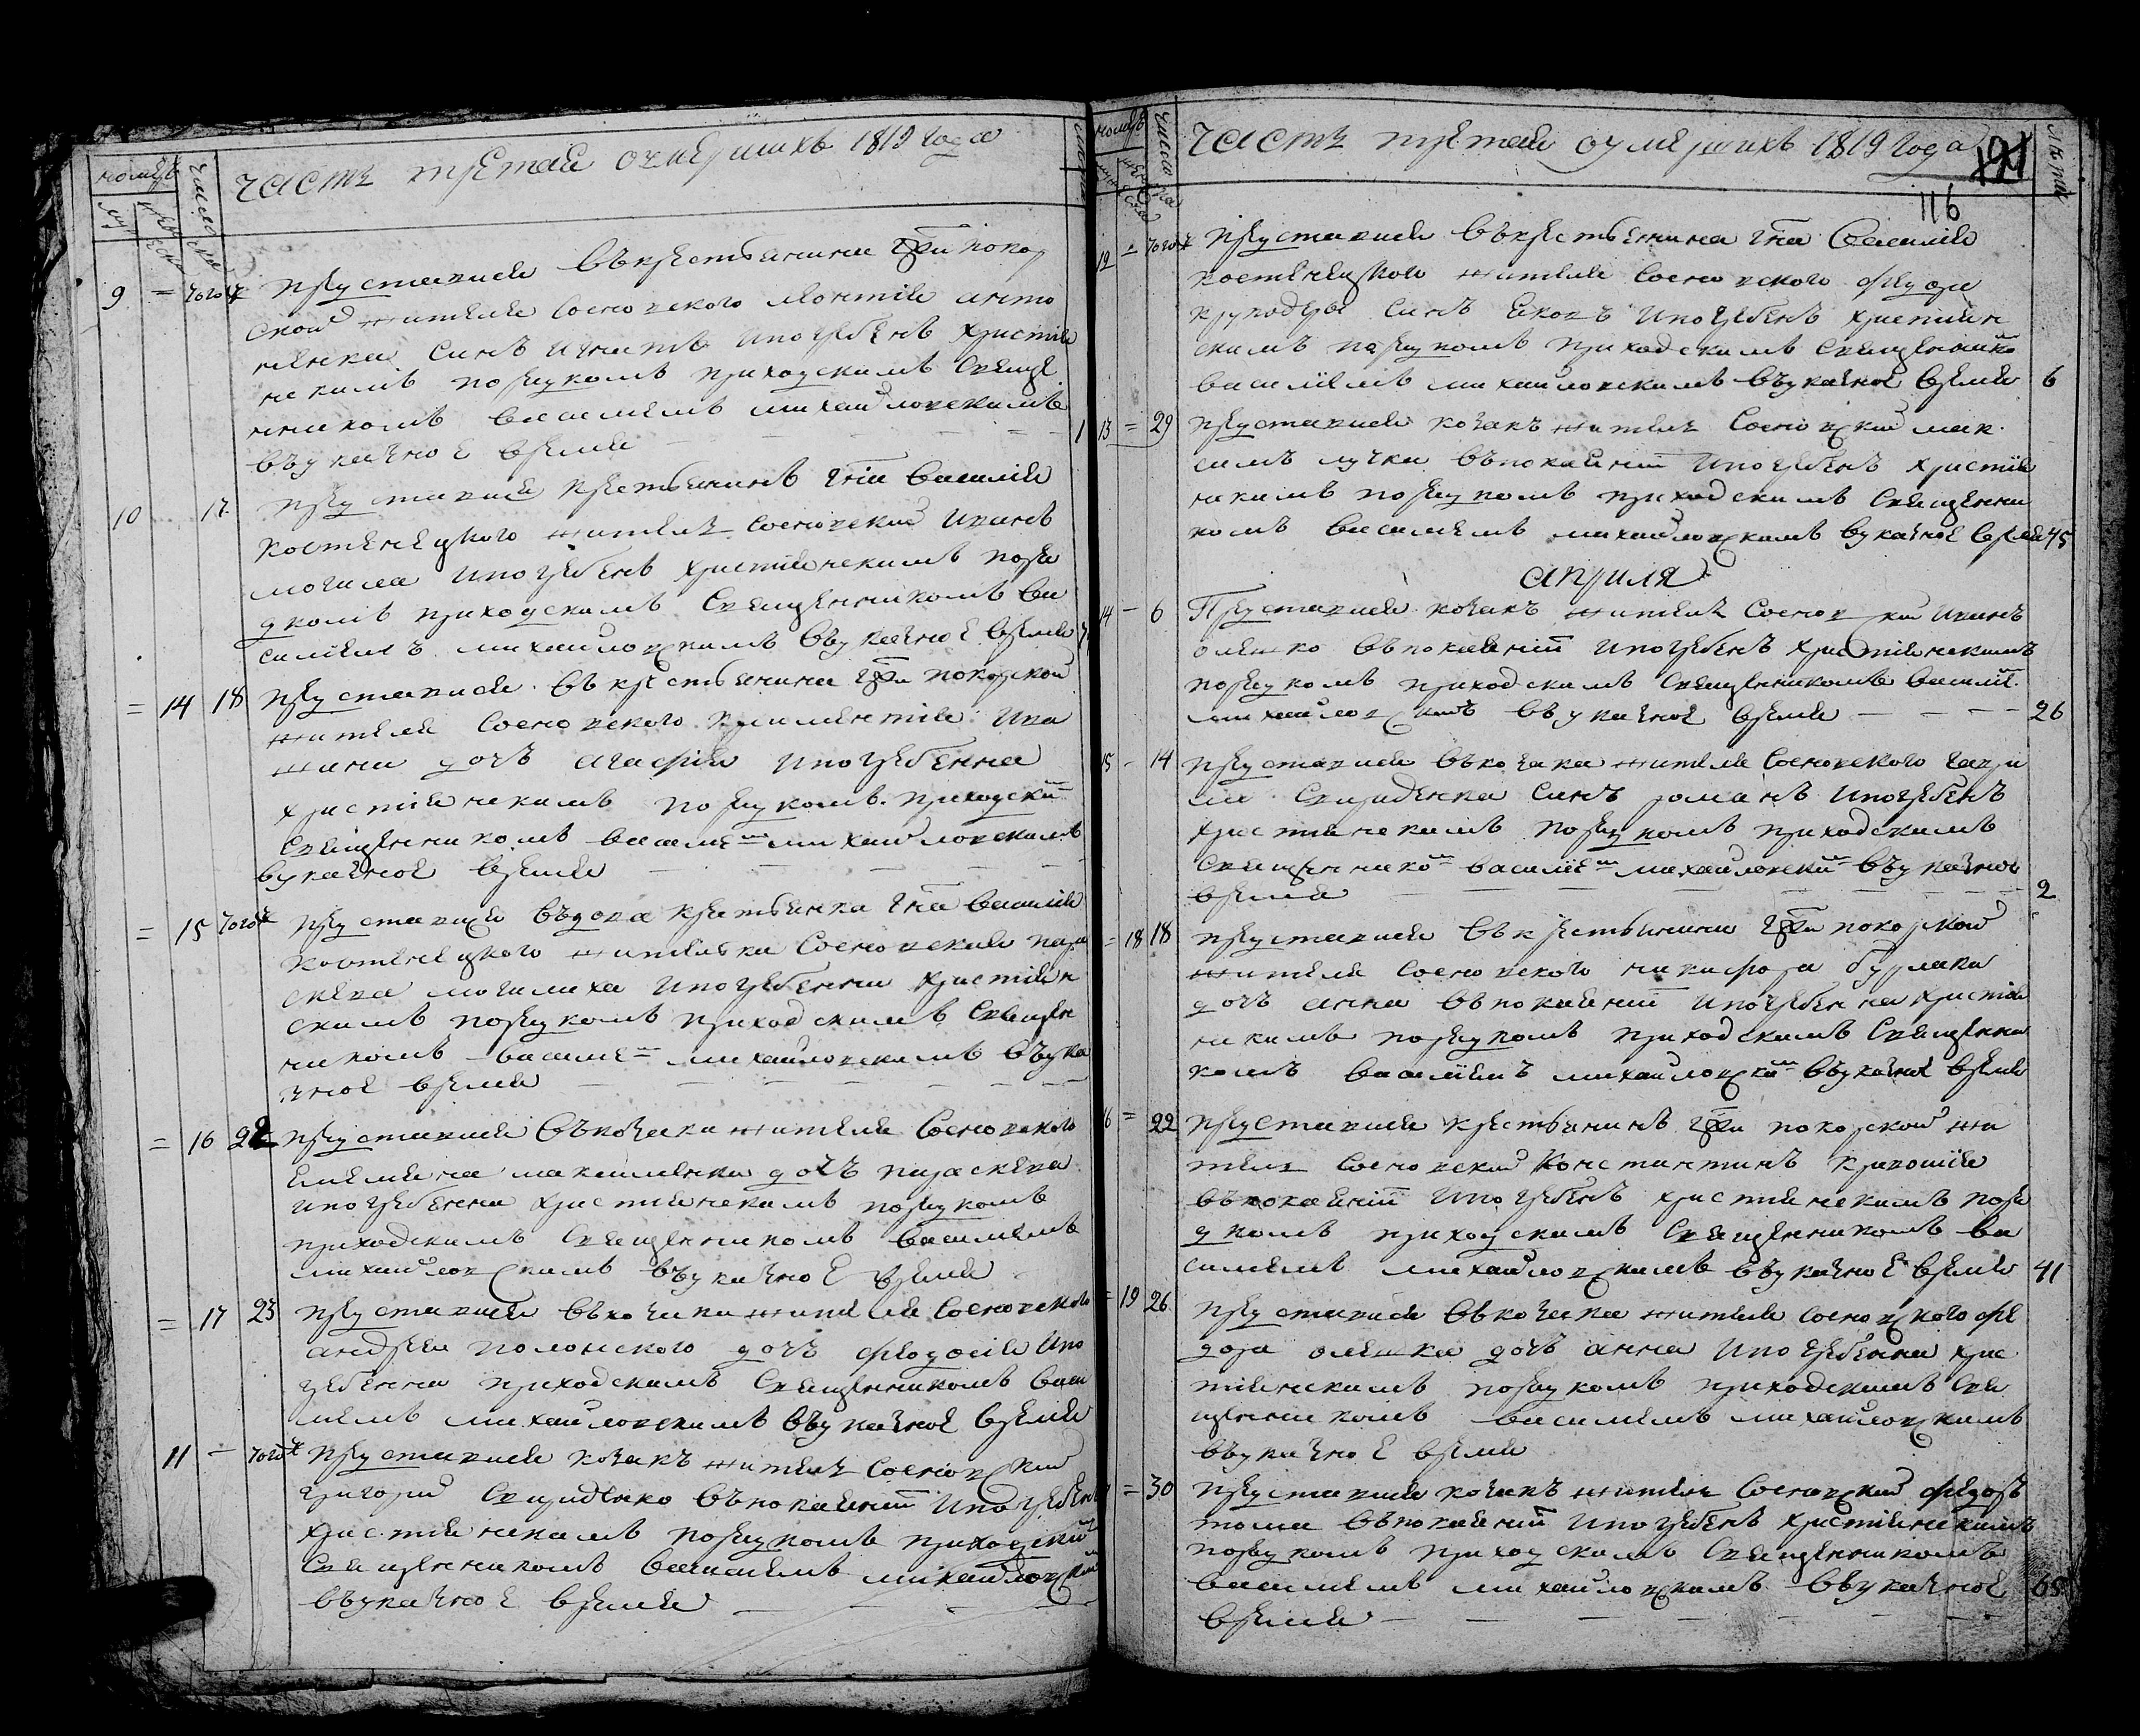 часть третая о умершихъ 1819 года
номеръ
числа
9 = Того же Преставися въ крестьянина гжи покор
ской жителя Сосновского леонтия анто
ненка Синъ игнатъ и погребенъ христия
нскимъ порядкомъ приходскимъ Священ
никомъ василиемъ михайловскимъ
въуказное время 1
10 17 Преставися крестьянинъ гна василия
костенецкого житель Сосновский иванъ
могила и погребенъ християнскимъ поря
дкомъ приходскимъ Священникомъ ва
силиемъ михайловскимъ въуказное время
= 14 18 Преставися въ крестьянина гжи покорской
жителя Сосновского климентия
дочъ агафия и погребенна
християнскимъ порядкомъ приходским
Священникомъ василием михайловскимъ
вуказное время
= 15 Того же Преставися въдова крестьянка гна василия
костенецкого жителька Сосновская пара
скева могилиха и погребенна християн
скимъ порядкомъ приходскимъ Священ
никомъ василием михайловскимъ въука
зное время
= 16 22 Преставися въ козака жителя Сосновского
емелияна максименка дочъ параскева
и погребенна християнскимъ порядкомъ
приходскимъ Священникомъ василиемъ
михайловскимъ въуказное время
= 17 23 Преставися въ козака жителя Сосновского
андрея полонского дочъ феодосия и по
гребенна приходскимъ Священникомъ васи
лиемъ михайловскимъ въуказное время
11 = Того же Преставися козакъ житель Сосновский
григорий Свириденко въпокаянии и погребенъ
християнскимъ порядкомъ приходским
Священникомъ василиемъ михайловским
въуказное время
часть третая о умершихъ 1819 года
121
116
номеръ
числа
лѣта
12 = Того же Преставися въ крестьянина гна Василия
костенецкого жителя Сосновского федора
синъ яковъ и погребенъ християн
скимъ порядкомъ приходскимъ Священником
василиемъ михайловскимъ въуказное время 6
13 = 29 Преставися козакъ житель Сосновский мак
симъ лучка въпокаянии и погребенъ христия
нскимъ порядкомъ приходскимъ Священни
комъ василиемъ михайловскимъ вуказное время 45
априля
14 = 6 Преставися козакъ житель Сосновский иванъ
олешко въпокаянии и погребенъ християнскимъ
порядкомъ приходскимъ Священникомъ василием
михайловскимъ въуказное время 26
15 = 14 Преставися въ козака жителя Сосновского гаври
ла Свириденка Синъ романъ и погребенъ
християнскимъ порядкомъ приходскимъ
Священником василием михайловским въуказное
время 2
= 18 18 Преставися въ крестьянина гжи покорской
жителя Сосновского никифора бурлака
дочъ анна въпокаянии и погребенна христия
нскимъ порядкомъ приходскимъ Священни
комъ василиемъ михайловским въуказное время
16 = 22 Преставися крестьянинъ гжи покорской жи
тель Сосновский Константинъ кривошия
въпокаянии и погребенъ християнскимъ поря
дкомъ приходскимъ Священникомъ ва
силиемъ михайловскимъ въуказное время 41
= 19 26 Преставися въ козака жителя Сосновского фе
дора олешка дочъ анна и погребенна хрис
тиянскимъ порядкомъ приходскимъ Свя
щенникомъ василиемъ михайловскимъ
въуказное время
= 30 Преставися козакъ житель Сосновский федоръ
въпокаянии и погребенъ християнскимъ
порядкомъ приходскимъ Священникомъ
василиемъ михайловскимъ въуказное 65
время